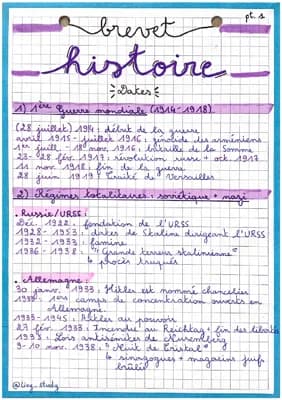 pt. 1
brevet
histoire
Dates
1) 1ère Guerre mondiale (1914-1918)
(28 juillet) 1914 : début de la guerre
avril 1915 - juillet 1916 : génocide des arméniens
1er juill. - 18 nov. 1916 : bataille de la Somme
23-28 fév. 1917 : révolution russe + oct. 1917
11 nov. 1918 : fin de la guerre
28 juin 1919 : Traité de Versailles
2) Régimes totalitaires : soviétique + nazi
• Russie/URSS :
Déc. 1922 : fondation de l'URSS
1928-1953 : dates de Staline dirigeant l'URSS
1932-1933 : famine
1936-1938 : "Grande terreur stalinienne"
↳ procès truqués
• Allemagne :
30 janv. 1933 : Hitler est nommé chancelier
1933 : 1ers camps de concentration ouverts en
Allemagne.
1933-1945 : Hitler au pouvoir
27 fév. 1933 : Incendie au Reichtag + fin des libertés
1935 : Lois antisémites de Nuremberg
9-10 nov. 1938 : "Nuit de Cristal"
↳ sinagogues + magasins juifs
brûlés
@ling_study